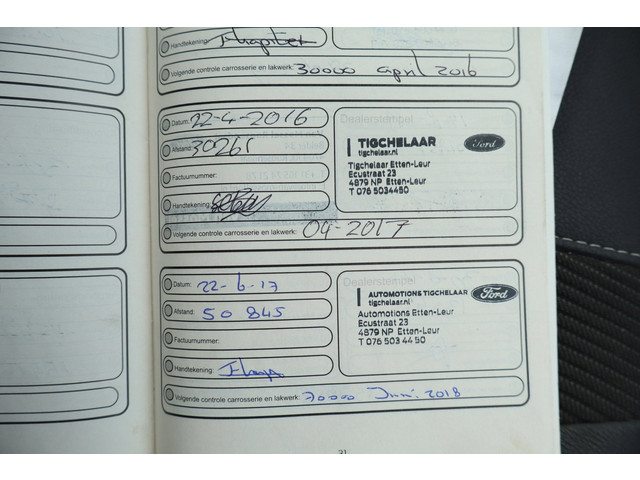 Handtekening:
Volgende controle carrosserie en lakwerk: 30000 april 2016
Datum: 22-4-2016
Afstand: 30265
Factuurnummer:
Handtekening:
Volgende controle carrosserie en lakwerk: 04-2017
Dealerstempel
TIGCHELAAR
tigchelaar.nl
Ford
Tigchelaar Etten-Leur
Ecustraat 23
4879 NP Etten-Leur
T 076 5034450
Datum: 22-6-17
Afstand: 50 845
Factuurnummer:
Handtekening:
Volgende controle carrosserie en lakwerk: 30000 Juni 2018
Dealerstempel
AUTOMOTIONS TIGCHELAAR
tigchelaar.nl
Ford
Automotions Etten-Leur
Ecustraat 23
4879 NP Etten-Leur
T 076 503 44 50
31